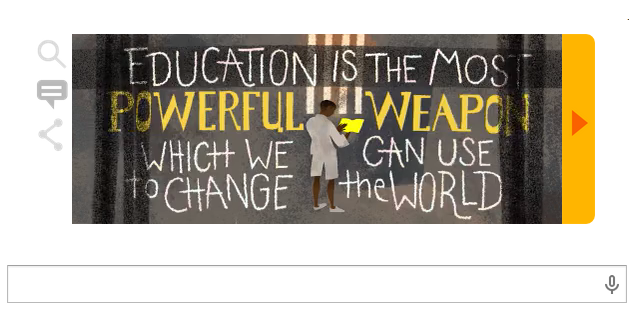 EDUCATION IS THE MOST
POWERFUL WEAPON
WHICH WE CAN USE
to CHANGE the WORLD